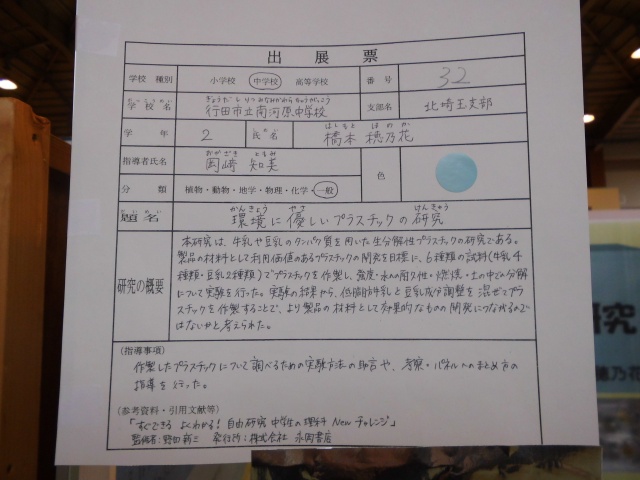 出展票
学校種別 小学校 中学校 高等学校 番号 32
ぎょうだしりつみなみかわらちゅうがっこう
学校名 行田市立南河原中学校 支部名 北埼玉支部
はしもと ほのか
学年 2 氏名 橋本 穂乃花
おかざき ともみ
指導者氏名 岡崎 知美 色
分類 植物・動物・地学・物理・化学・一般
かんきょう やさ けんきゅう
題名 環境に優しいプラスチックの研究
研究の概要
本研究は、牛乳や豆乳のタンパク質を用いた生分解性プラスチックの研究である。
製品の材料として利用価値のあるプラスチックの開発を目標に、6種類の試料(牛乳4
種類・豆乳2種類)でプラスチックを作製し、強度・水への耐久性・燃焼・土の中での分解
について実験を行った。実験の結果から、低脂肪牛乳と豆乳成分調整を混ぜてプラ
スチックを作製することで、より製品の材料として効果的なものの開発につながるので
はないかと考えられた。
(指導事項)
作製したプラスチックについて調べるための実験方法の助言や、考察・パネルへのまとめ方の
指導を行った。
(参考資料・引用文献等)
「すぐできる よくわかる! 自由研究 中学生の理科 Newチャレンジ」
監修者:野田新三 発行所:株式会社 永岡書店
研究
穂乃花